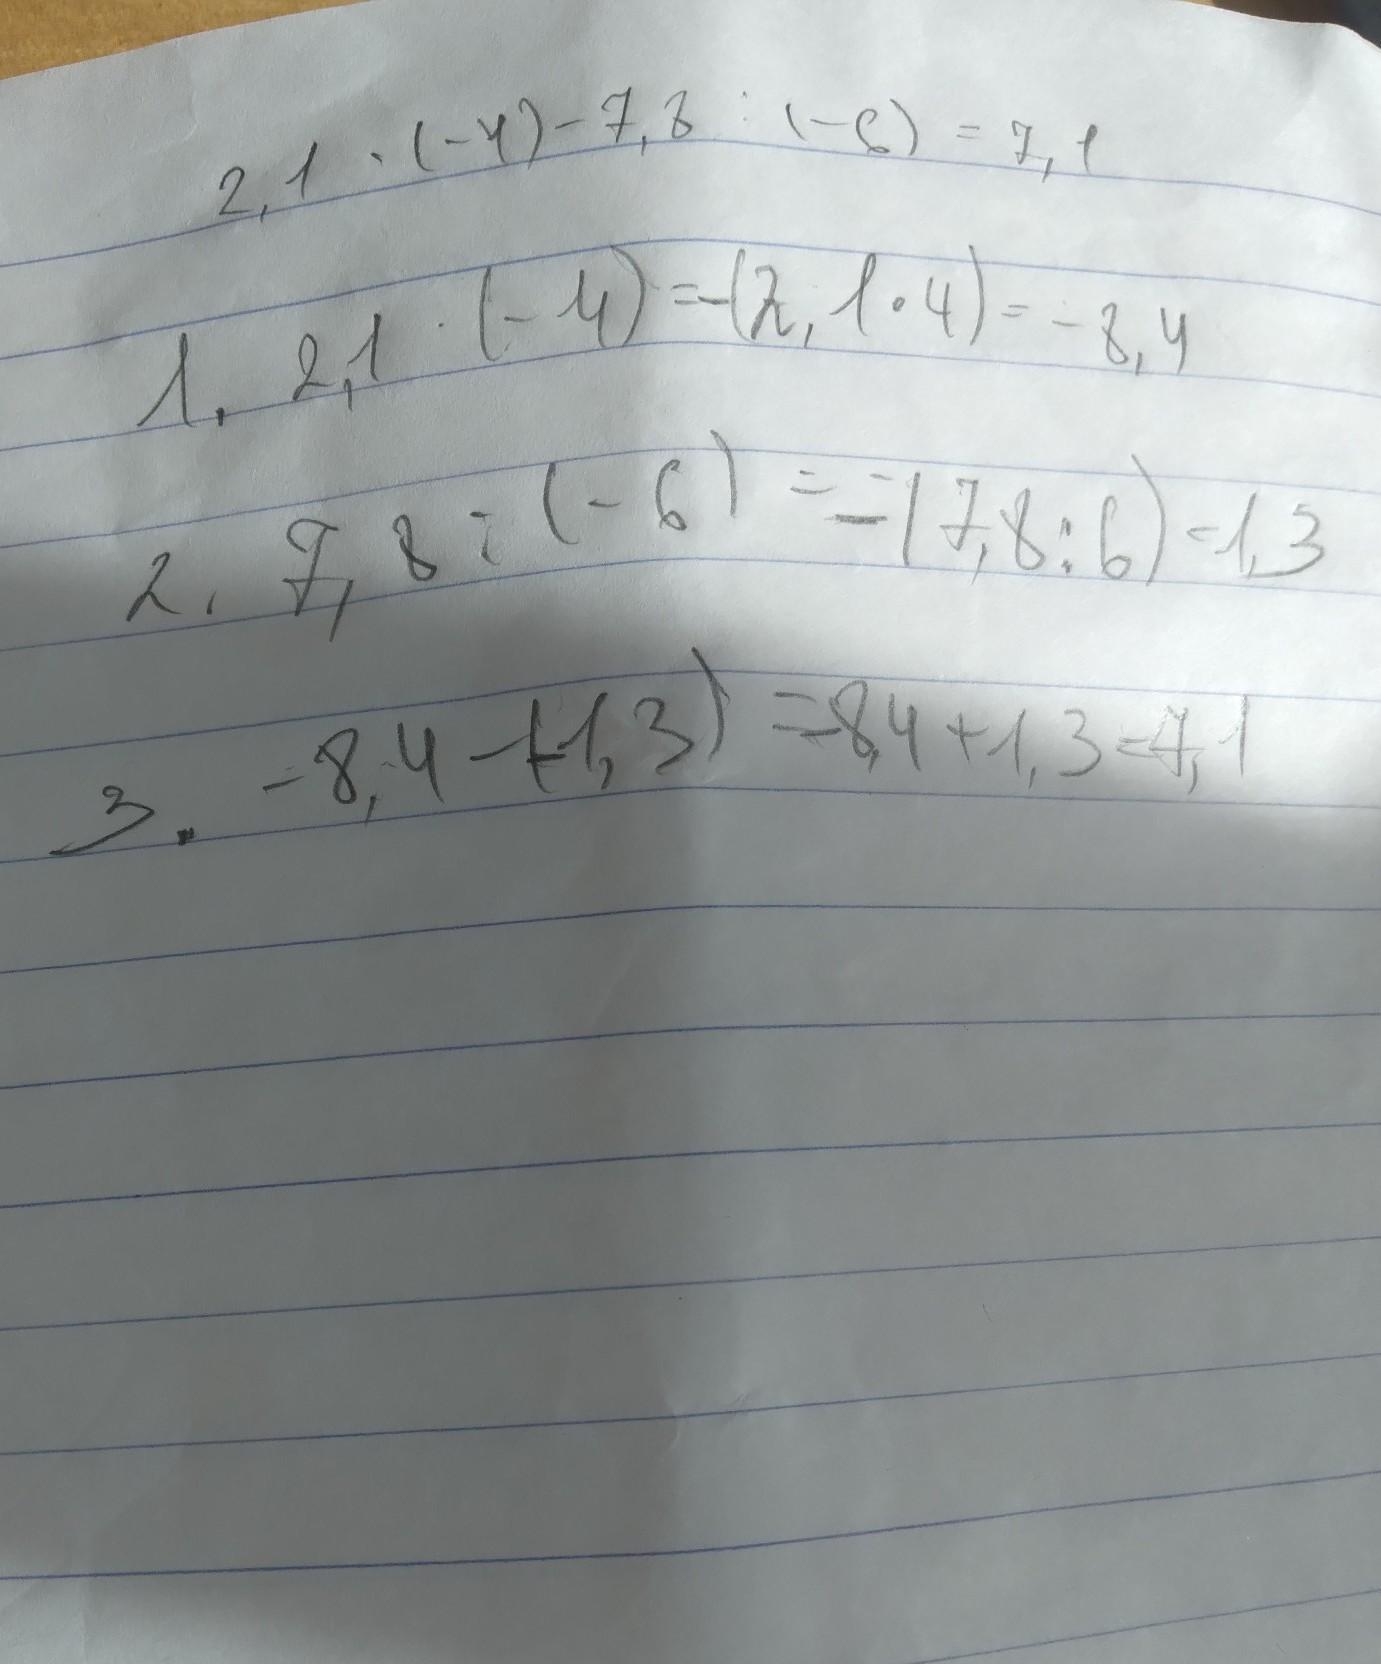 2,1 · (-4) - 7,8 : (-6) = 7,1
1. 2,1 · (-4) = -(2,1 · 4) = -8,4
2. 7,8 : (-6) = -(7,8 : 6) = 1,3
3. -8,4 - (-1,3) = -8,4 + 1,3 = -7,1